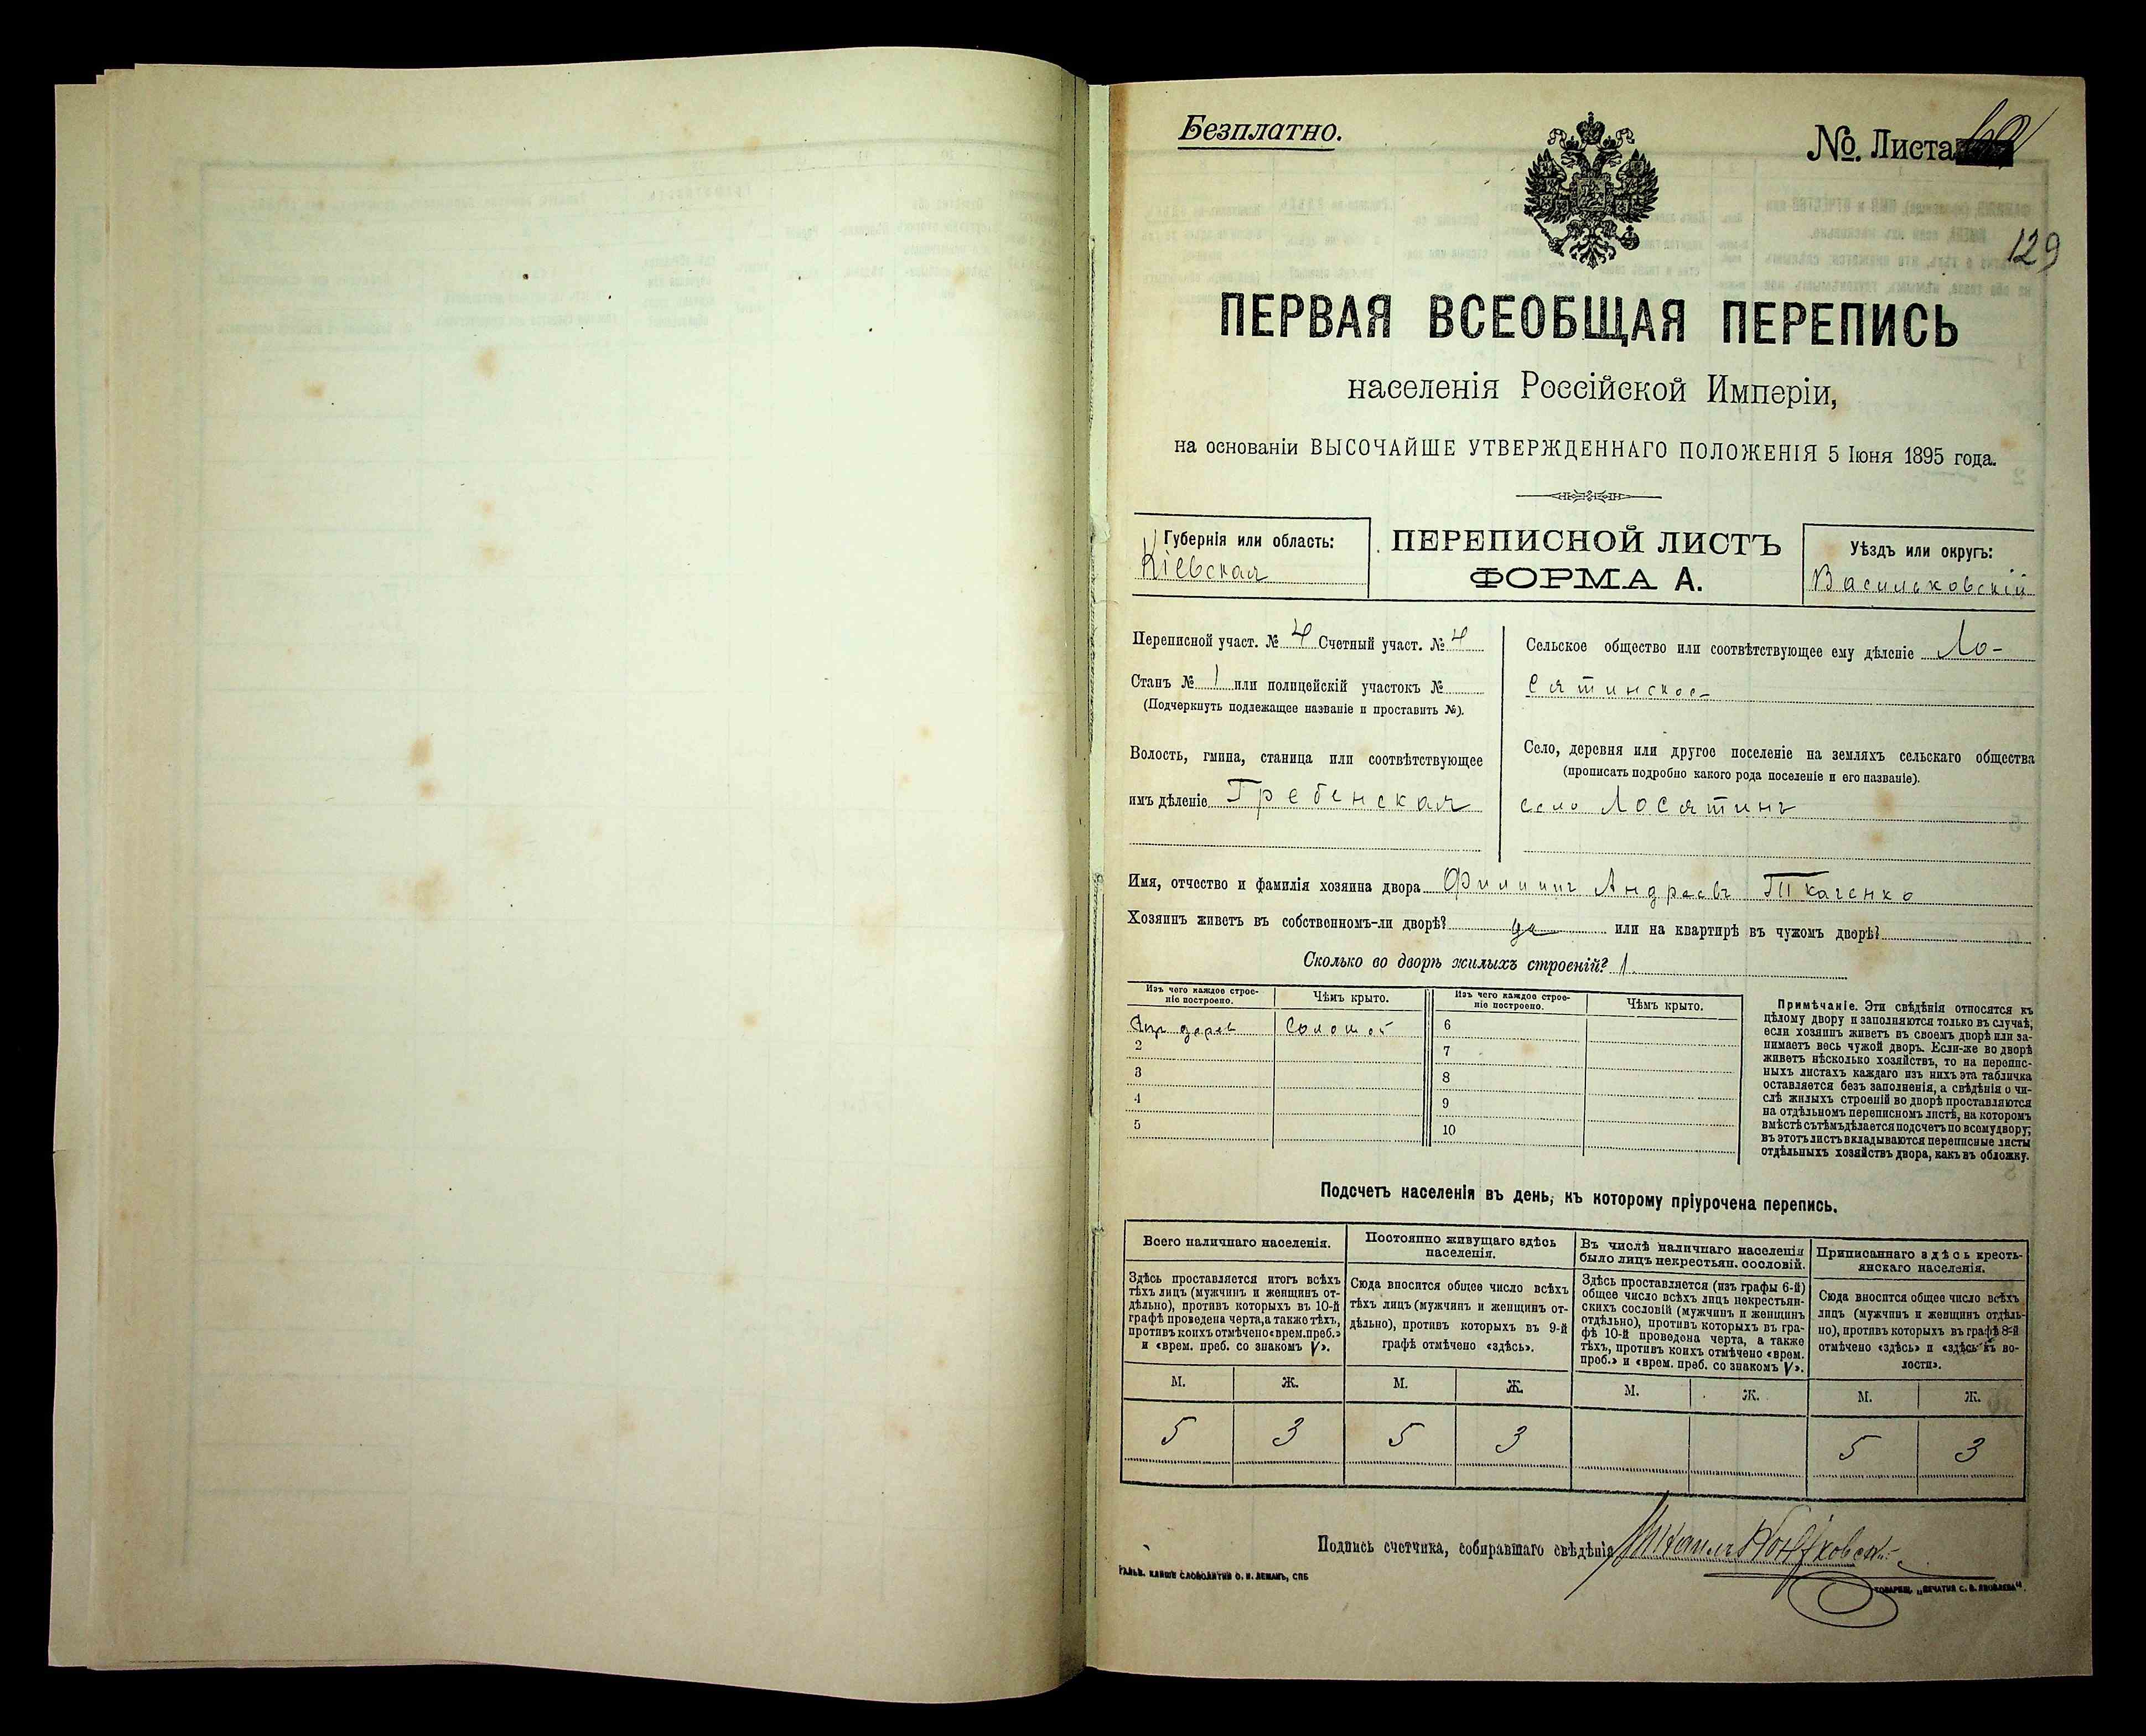 Безплатно.
№. Листа
129
ПЕРВАЯ ВСЕОБЩАЯ ПЕРЕПИСЬ
населенія Россійской Имперіи,
на основаніи ВЫСОЧАЙШЕ УТВЕРЖДЕННАГО ПОЛОЖЕНІЯ 5 Іюня 1895 года.
Губернія или область:
Кіевская
ПЕРЕПИСНОЙ ЛИСТЪ
ФОРМА А.
Уѣздъ или округъ:
Васильковскій
Переписной участ. № 4 Счетный участ. № 4
Станъ № 1 или полицейскій участокъ №
(Подчеркнуть подлежащее названіе и проставить №).
Волость, гмина, станица или соотвѣтствующее
имъ дѣленіе Гребенская
Сельское общество или соотвѣтствующее ему дѣленіе Ло-
сятинское
Село, деревня или другое поселеніе на земляхъ сельскаго общества
(прописать подробно какого рода поселеніе и его названіе).
село Лосятинъ
Имя, отчество и фамилія хозяина двора Филиппъ Андреевъ Ткаченко
Хозяинъ живетъ въ собственномъ-ли дворѣ? да или на квартирѣ въ чужомъ дворѣ?
Сколько во дворѣ жилыхъ строеній? 1
Изъ чего каждое строе-
ніе построено.
Чѣмъ крыто.
Изъ чего каждое строе-
ніе построено.
Чѣмъ крыто.
дерев соломой 6
2 7
3 8
4 9
5 10
Примѣчаніе. Эти свѣдѣнія относятся къ
цѣлому двору и заполняются только въ случаѣ,
если хозяинъ живетъ въ своемъ дворѣ или за-
нимаетъ весь чужой дворъ. Если-же во дворѣ
живетъ нѣсколько хозяйствъ, то на перепис-
ныхъ листахъ каждаго изъ нихъ эта табличка
оставляется безъ заполненія, а свѣдѣнія о чи-
слѣ жилыхъ строеній во дворѣ проставляются
на отдѣльномъ переписномъ листѣ, на которомъ
вмѣстѣ съ тѣмъ дѣлается подсчетъ по всему двору;
въ этотъ листъ вкладываются переписные листы
отдѣльныхъ хозяйствъ двора, какъ въ обложку.
Подсчетъ населенія въ день, къ которому пріурочена перепись.
Всего наличнаго населенія.
Здѣсь проставляется итогъ всѣхъ
тѣхъ лицъ (мужчинъ и женщинъ от-
дѣльно), противъ которыхъ въ 10-й
графѣ проведена черта, а также тѣхъ,
противъ коихъ отмѣчено «врем. преб.»
и «врем. преб. со знакомъ V».
Постоянно живущаго здѣсь
населенія.
Сюда вносится общее число всѣхъ
тѣхъ лицъ (мужчинъ и женщинъ от-
дѣльно), противъ которыхъ въ 9-й
графѣ отмѣчено «здѣсь».
Въ числѣ наличнаго населенія
было лицъ некрестьян. сословій.
Здѣсь проставляется (изъ графы 6-й)
общее число всѣхъ лицъ некрестьян-
скихъ сословій (мужчинъ и женщинъ
отдѣльно), противъ которыхъ въ гра-
фѣ 10-й проведена черта, а также
тѣхъ, противъ коихъ отмѣчено «врем.
преб.» и «врем. преб. со знакомъ V».
Приписаннаго здѣсь кресть-
янскаго населенія.
Сюда вносится общее число всѣхъ
лицъ (мужчинъ и женщинъ отдѣль-
но), противъ которыхъ въ графѣ 8-й
отмѣчено «здѣсь» и «здѣсь къ во-
лости».
М. Ж. М. Ж. М. Ж. М. Ж.
5 3 5 3 5 3
Подпись счетчика, собиравшаго свѣдѣнія Михаилъ
ГАЛЬВ. КЛИШЕ СЛОВОЛИТНИ О. И. ЛЕМАНЪ, СПБ
ТОВАРИЩ. „ПЕЧАТНЯ С. П. ЯКОВЛЕВА".